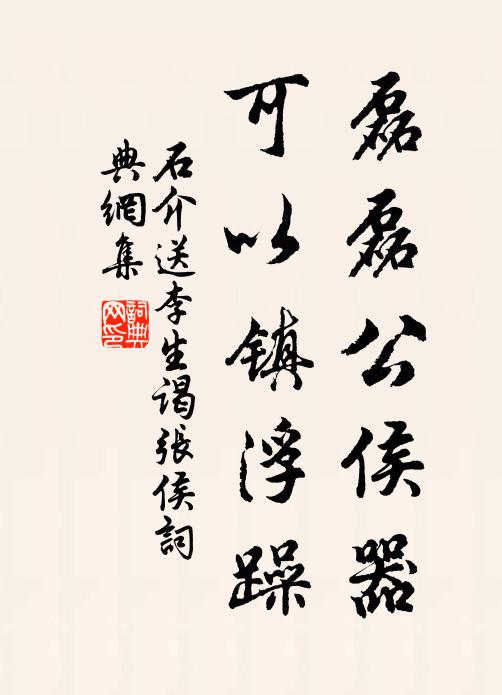 磊磊公侯器
可以镇浮躁
石介送李生谒張侯詞
典網集
詞典
网印